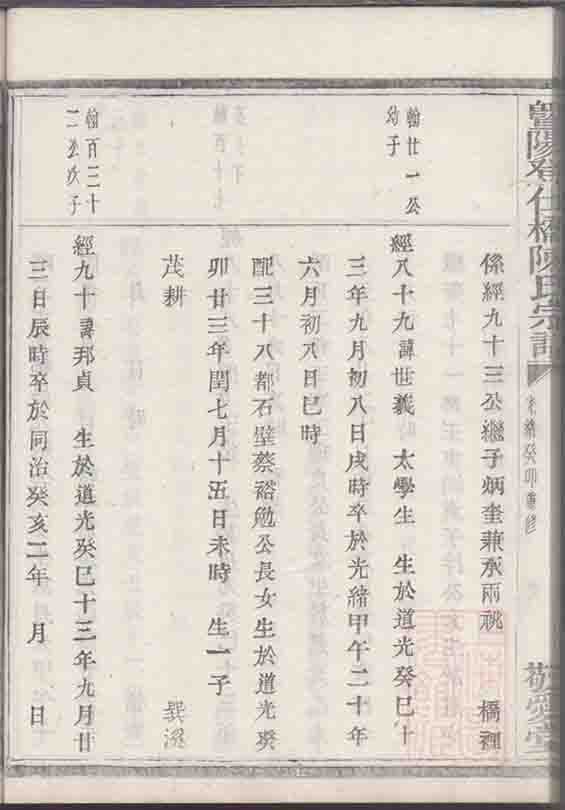 暨陽登仕橋陳氏宗譜
光緒癸卯重修
敬愛堂
係經九十三公繼子炳奎兼承兩祧 橋裡
翰廿一公
幼子
經八十九諱世義 太學生 生於道光癸巳十
三年九月初八日戌時卒於光緒甲午二十年
六月初八日巳時
配三十八都石壁蔡裕勉公長女生於道光癸
卯廿三年閏七月十五日未時 生一子
茂耕 巽溪
翰百三十
二公次子
經九十諱邦貞 生於道光癸巳十三年九月廿
三日辰時卒於同治癸亥二年 月 日